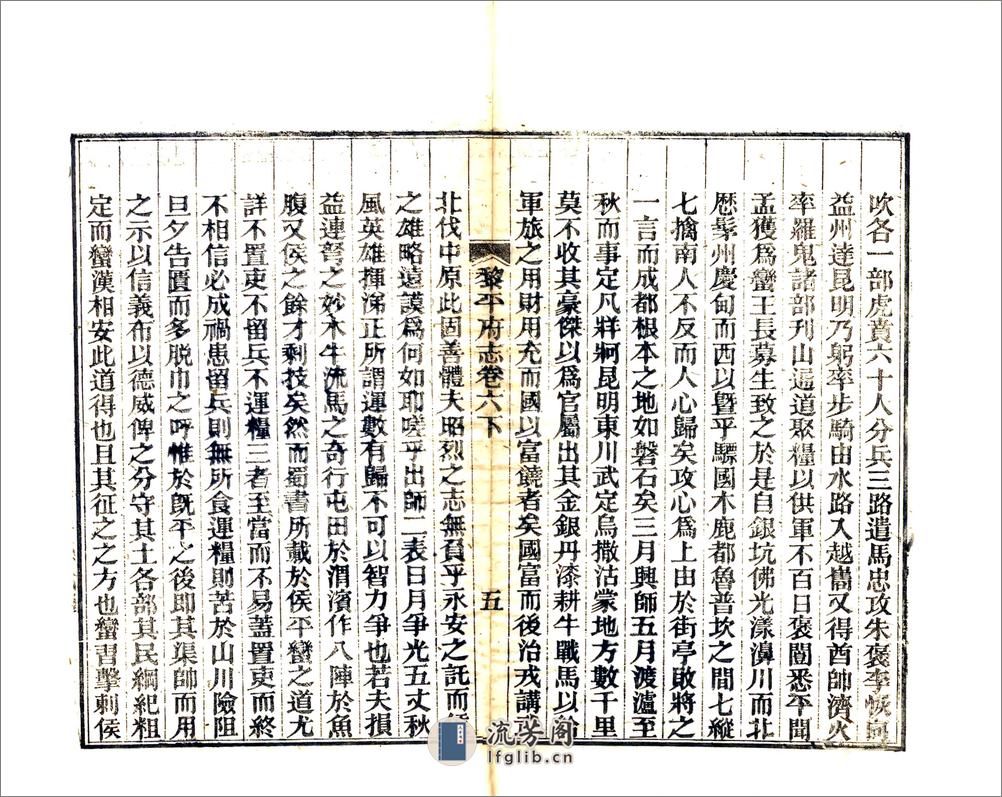 吹各一部虎賁六十人分兵三路遣馬忠攻朱褒李恢向
益州達昆明乃躬率步騎由水路入越巂又得酋帥濟火
率羅鬼諸部刋山通道聚糧以供軍不百日褒闓悉平聞
孟獲爲蠻王長募生致之於是自銀坑佛光漾濞川而北
歷髳州慶甸而西以暨乎驃國木鹿都魯普坎之間七縱
七擒南人不反而人心歸矣攻心爲上由於街亭敗將之
一言而成都根本之地如磐石矣三月興師五月渡瀘至
秋而事定凡牂牁昆明東川武定烏撒沽蒙地方數千里
莫不收其豪傑以爲官屬出其金銀丹漆耕牛戰馬以給
軍旅之用財用充而國以富饒者矣國富而後治戎講武
黎平府志卷六下
五
北伐中原此固善體夫昭烈之志無負乎永安之託而
之雄略遠謨爲何如耶嗟乎出師二表日月爭光五丈秋
風英雄揮涕正所謂運數有歸不可以智力爭也若夫損
益連弩之妙木牛流馬之奇行屯田於渭濱作八陣於魚
腹又侯之餘才剩技矣然而蜀書所載於侯平蠻之道尤
詳不置吏不留兵不運糧三者至當而不易蓋置吏而終
不相信必成禍患留兵則無所食運糧則苦於山川險阻
旦夕告匱而多脫巾之呼惟於旣平之後即其渠帥而用
之示以信義布以德威俾之分守其土各部其民綱紀粗
定而蠻漢相安此道得也且其征之之方也蠻習擊刺侯
流芳閣
lfglib.cn